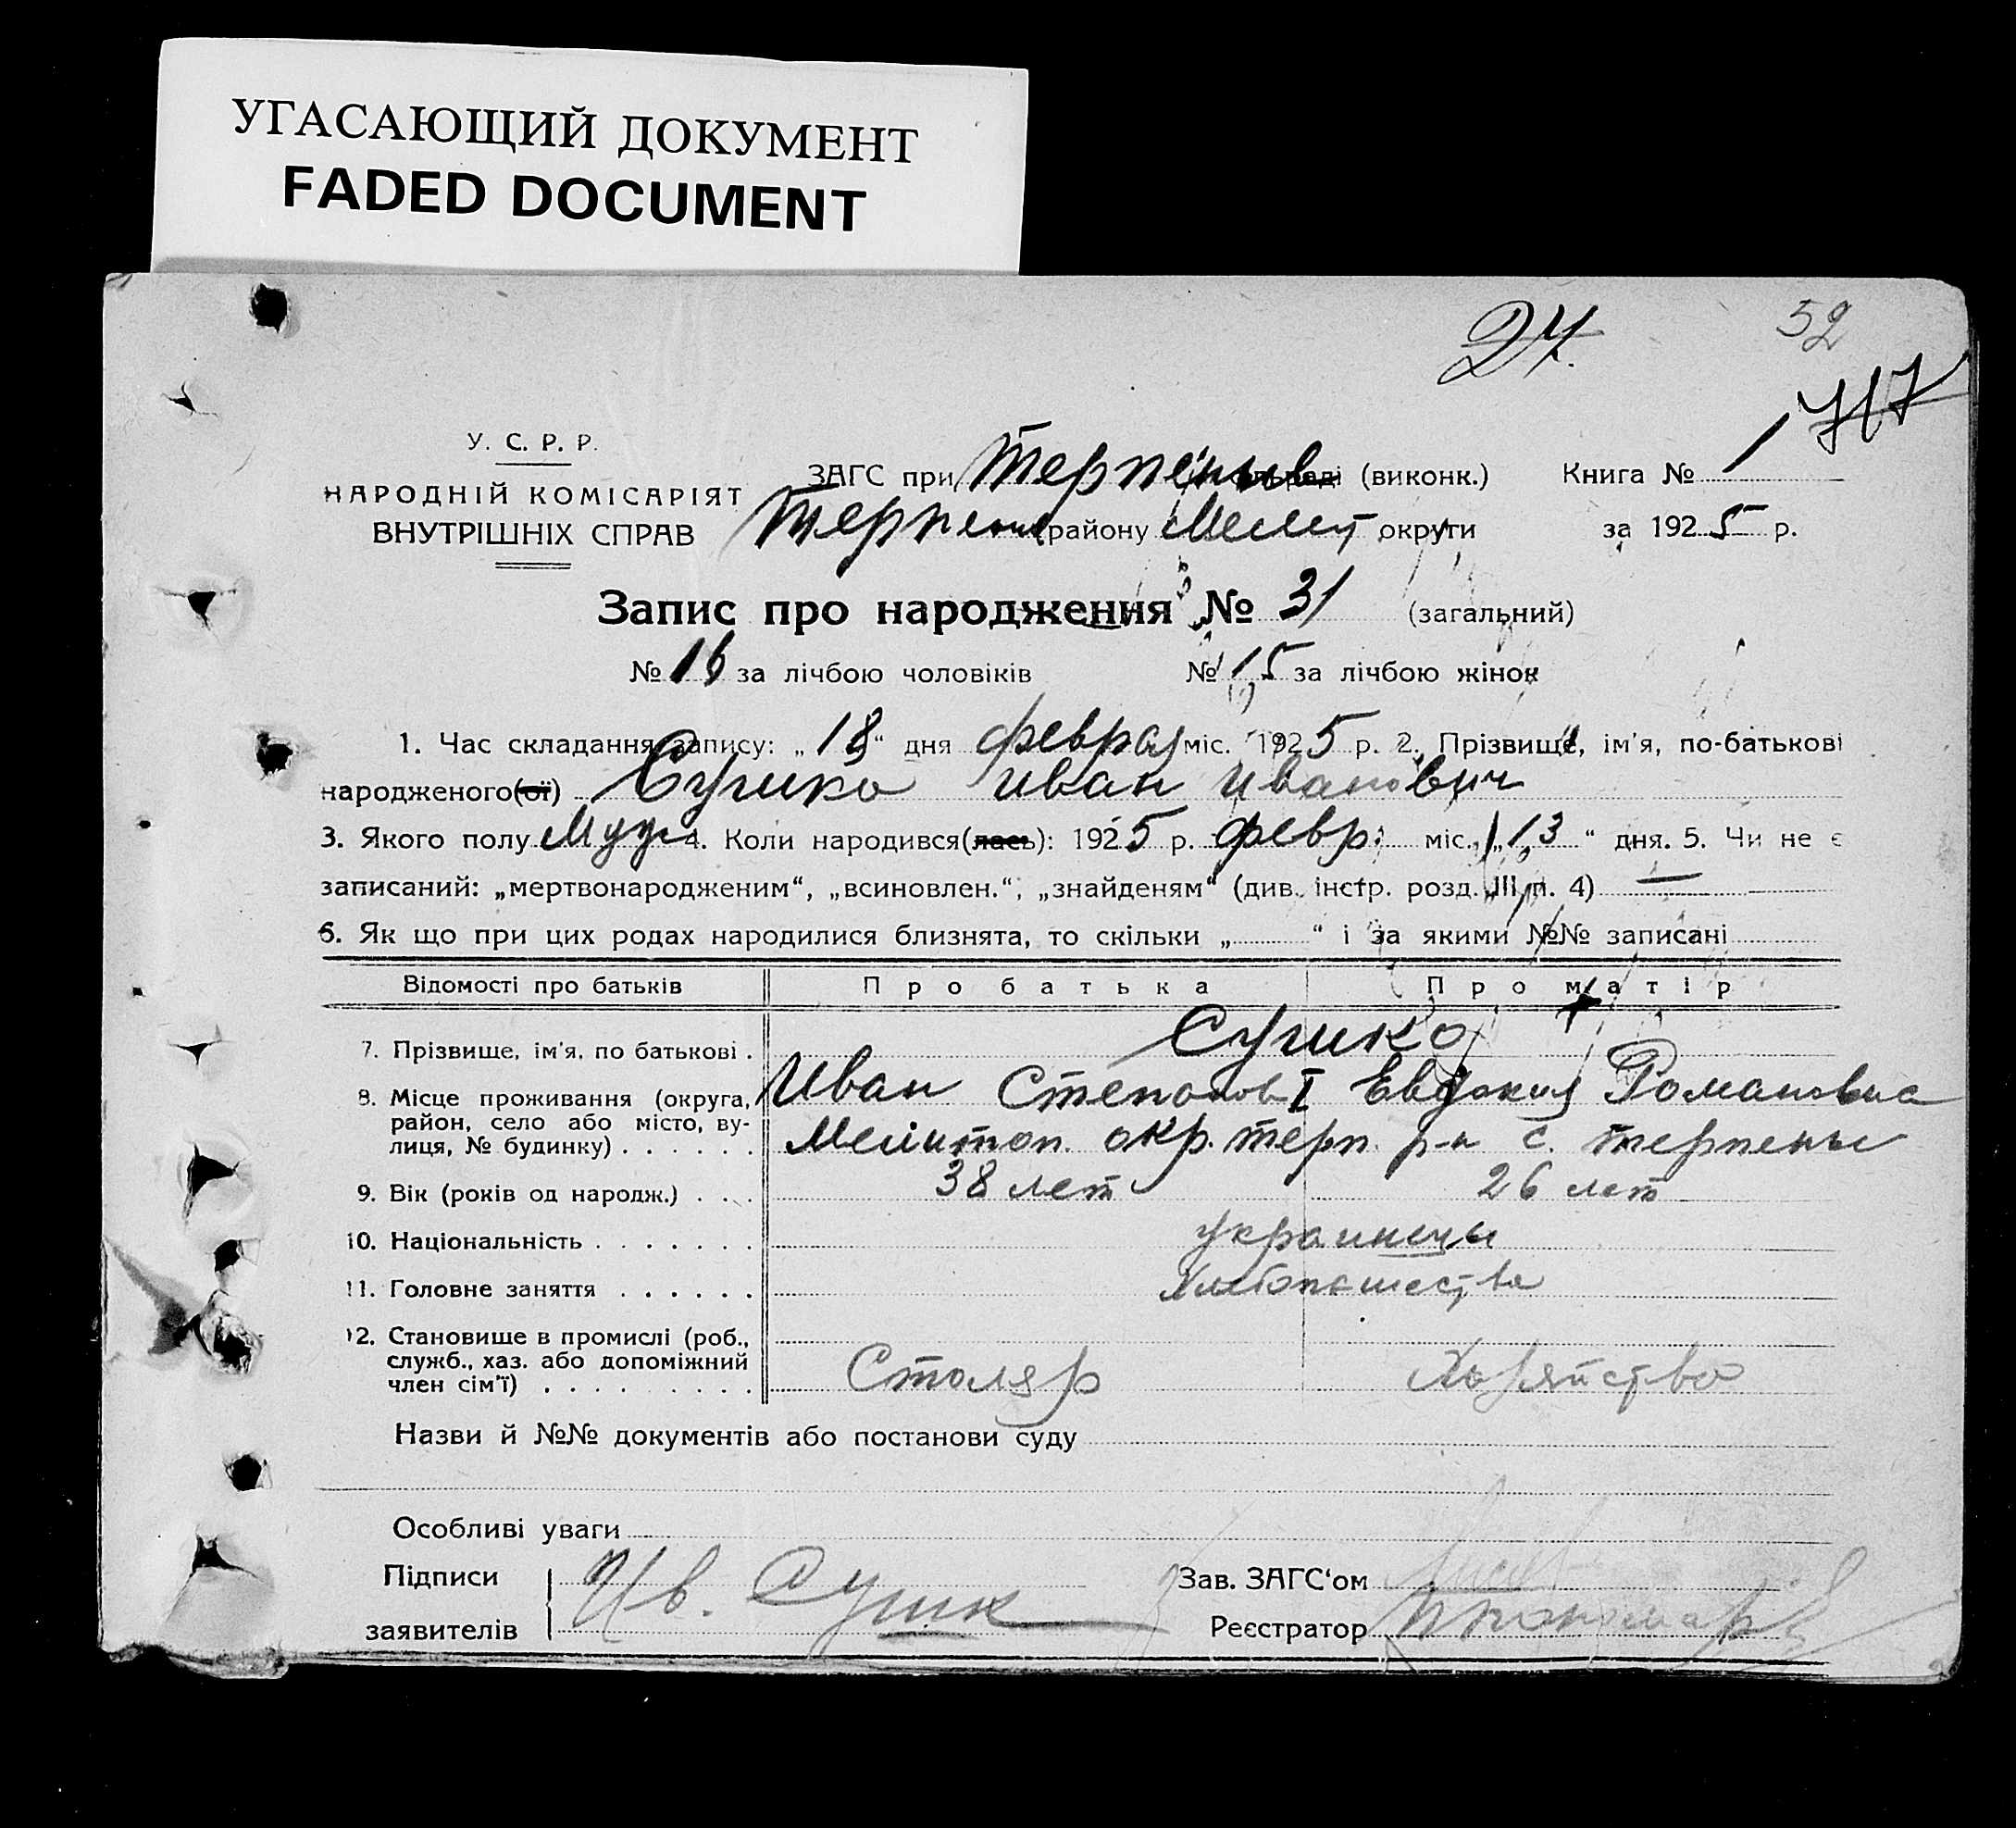 УГАСАЮЩИЙ ДОКУМЕНТ
FADED DOCUMENT
27.
52
717
У. С. Р. Р.
НАРОДНІЙ КОМІСАРІЯТ
ВНУТРІШНІХ СПРАВ
ЗАГС при Терпеньев (виконк.) Книга № 1
Терпень району Мелит округи за 1925 р.
Запис про народження № 31 (загальний)
№ 16 за лічбою чоловіків № 15 за лічбою жінок
1. Час складання запису: „18“ дня февраля міс. 1925 р. 2. Прізвище, ім'я, по-батькові
народженого(ої) Сушко Иван Иванович
3. Якого полу Муж 4. Коли народився(лась): 1925 р. февр. міс. „13“ дня. 5. Чи не є
записаний: „мертвонародженим“, „всиновлен.“, „знайденям“ (див. інстр. розд. III, п. 4) —
6. Як що при цих родах народилися близнята, то скільки „ “ і за якими №№ записані
Відомості про батьків Про батька Про матір
7. Прізвище, ім'я, по батькові . Сушко
8. Місце проживання (округа, Иван Степанов I Евдокия Романовна
район, село або місто, ву-
лиця, № будинку) . . . . . . Мелитоп. окр. терп. р-н с. терпенье
9. Вік (років од народж.) . . . 38 лет 26 лет
10. Національність . . . . . . . украинцы
11. Головне заняття . . . . . . Хлебопашество
12. Становище в промислі (роб.,
служб., хаз. або допоміжний
член сім'ї) . . . . . . . . . Столяр Хозяйство
Назви й №№ документів або постанови суду
Особливі уваги
Підписи Ив. Сушк Зав. ЗАГС‘ом
заявителів Реєстратор